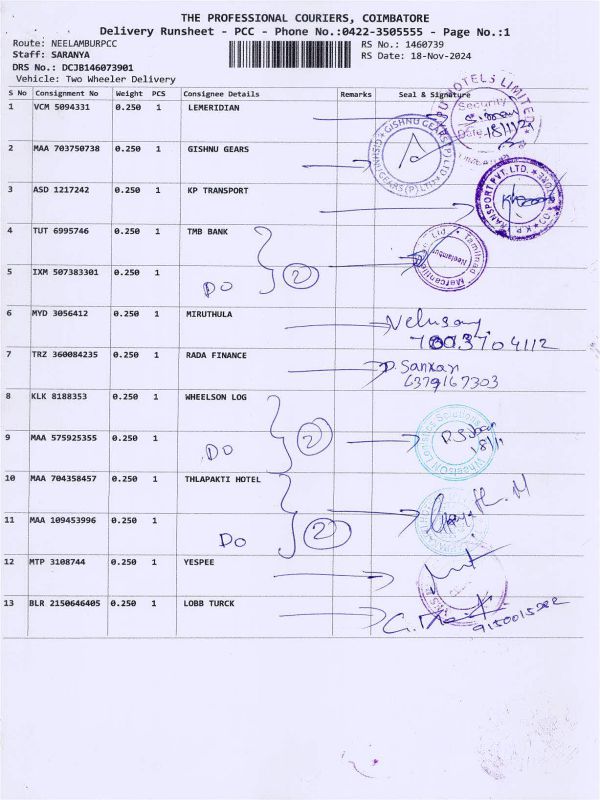 THE PROFESSIONAL COURIERS, COIMBATORE
Delivery Runsheet - PCC - Phone No.:0422-3505555 - Page No.:1
Route: NEELAMBURPCC RS No.: 1460739
Staff: SARANYA RS Date: 18-Nov-2024
DRS No.: DCJB146073901
Vehicle: Two Wheeler Delivery
S No Consignment No Weight PCS Consignee Details Remarks Seal & Signature
1 VCM 5094331 0.250 1 LEMERIDIAN
HOTELS LIMITED
Security
Date 18/11/2
2 MAA 703750738 0.250 1 GISHNU GEARS
GISHNU GEARS (P) LTD
3 ASD 1217242 0.250 1 KP TRANSPORT
TRANSPORT PVT. LTD.
4 TUT 6995746 0.250 1 TMB BANK
Tamilnad Mercantile
Neelambur
5 IXM 507383301 0.250 1
DO 2
6 MYD 3056412 0.250 1 MIRUTHULA
Velusamy
7 TRZ 360084235 0.250 1 RADA FINANCE
D. Sanxar
6379167303
8 KLK 8188353 0.250 1 WHEELSON LOG
WheelsON Logistics Solutions
9 MAA 575925355 0.250 1
DO 2
18/11
10 MAA 704358457 0.250 1 THLAPAKTI HOTEL
11 MAA 109453996 0.250 1
DO 2
12 MTP 3108744 0.250 1 YESPEE
13 BLR 2150646405 0.250 1 LOBB TURCK